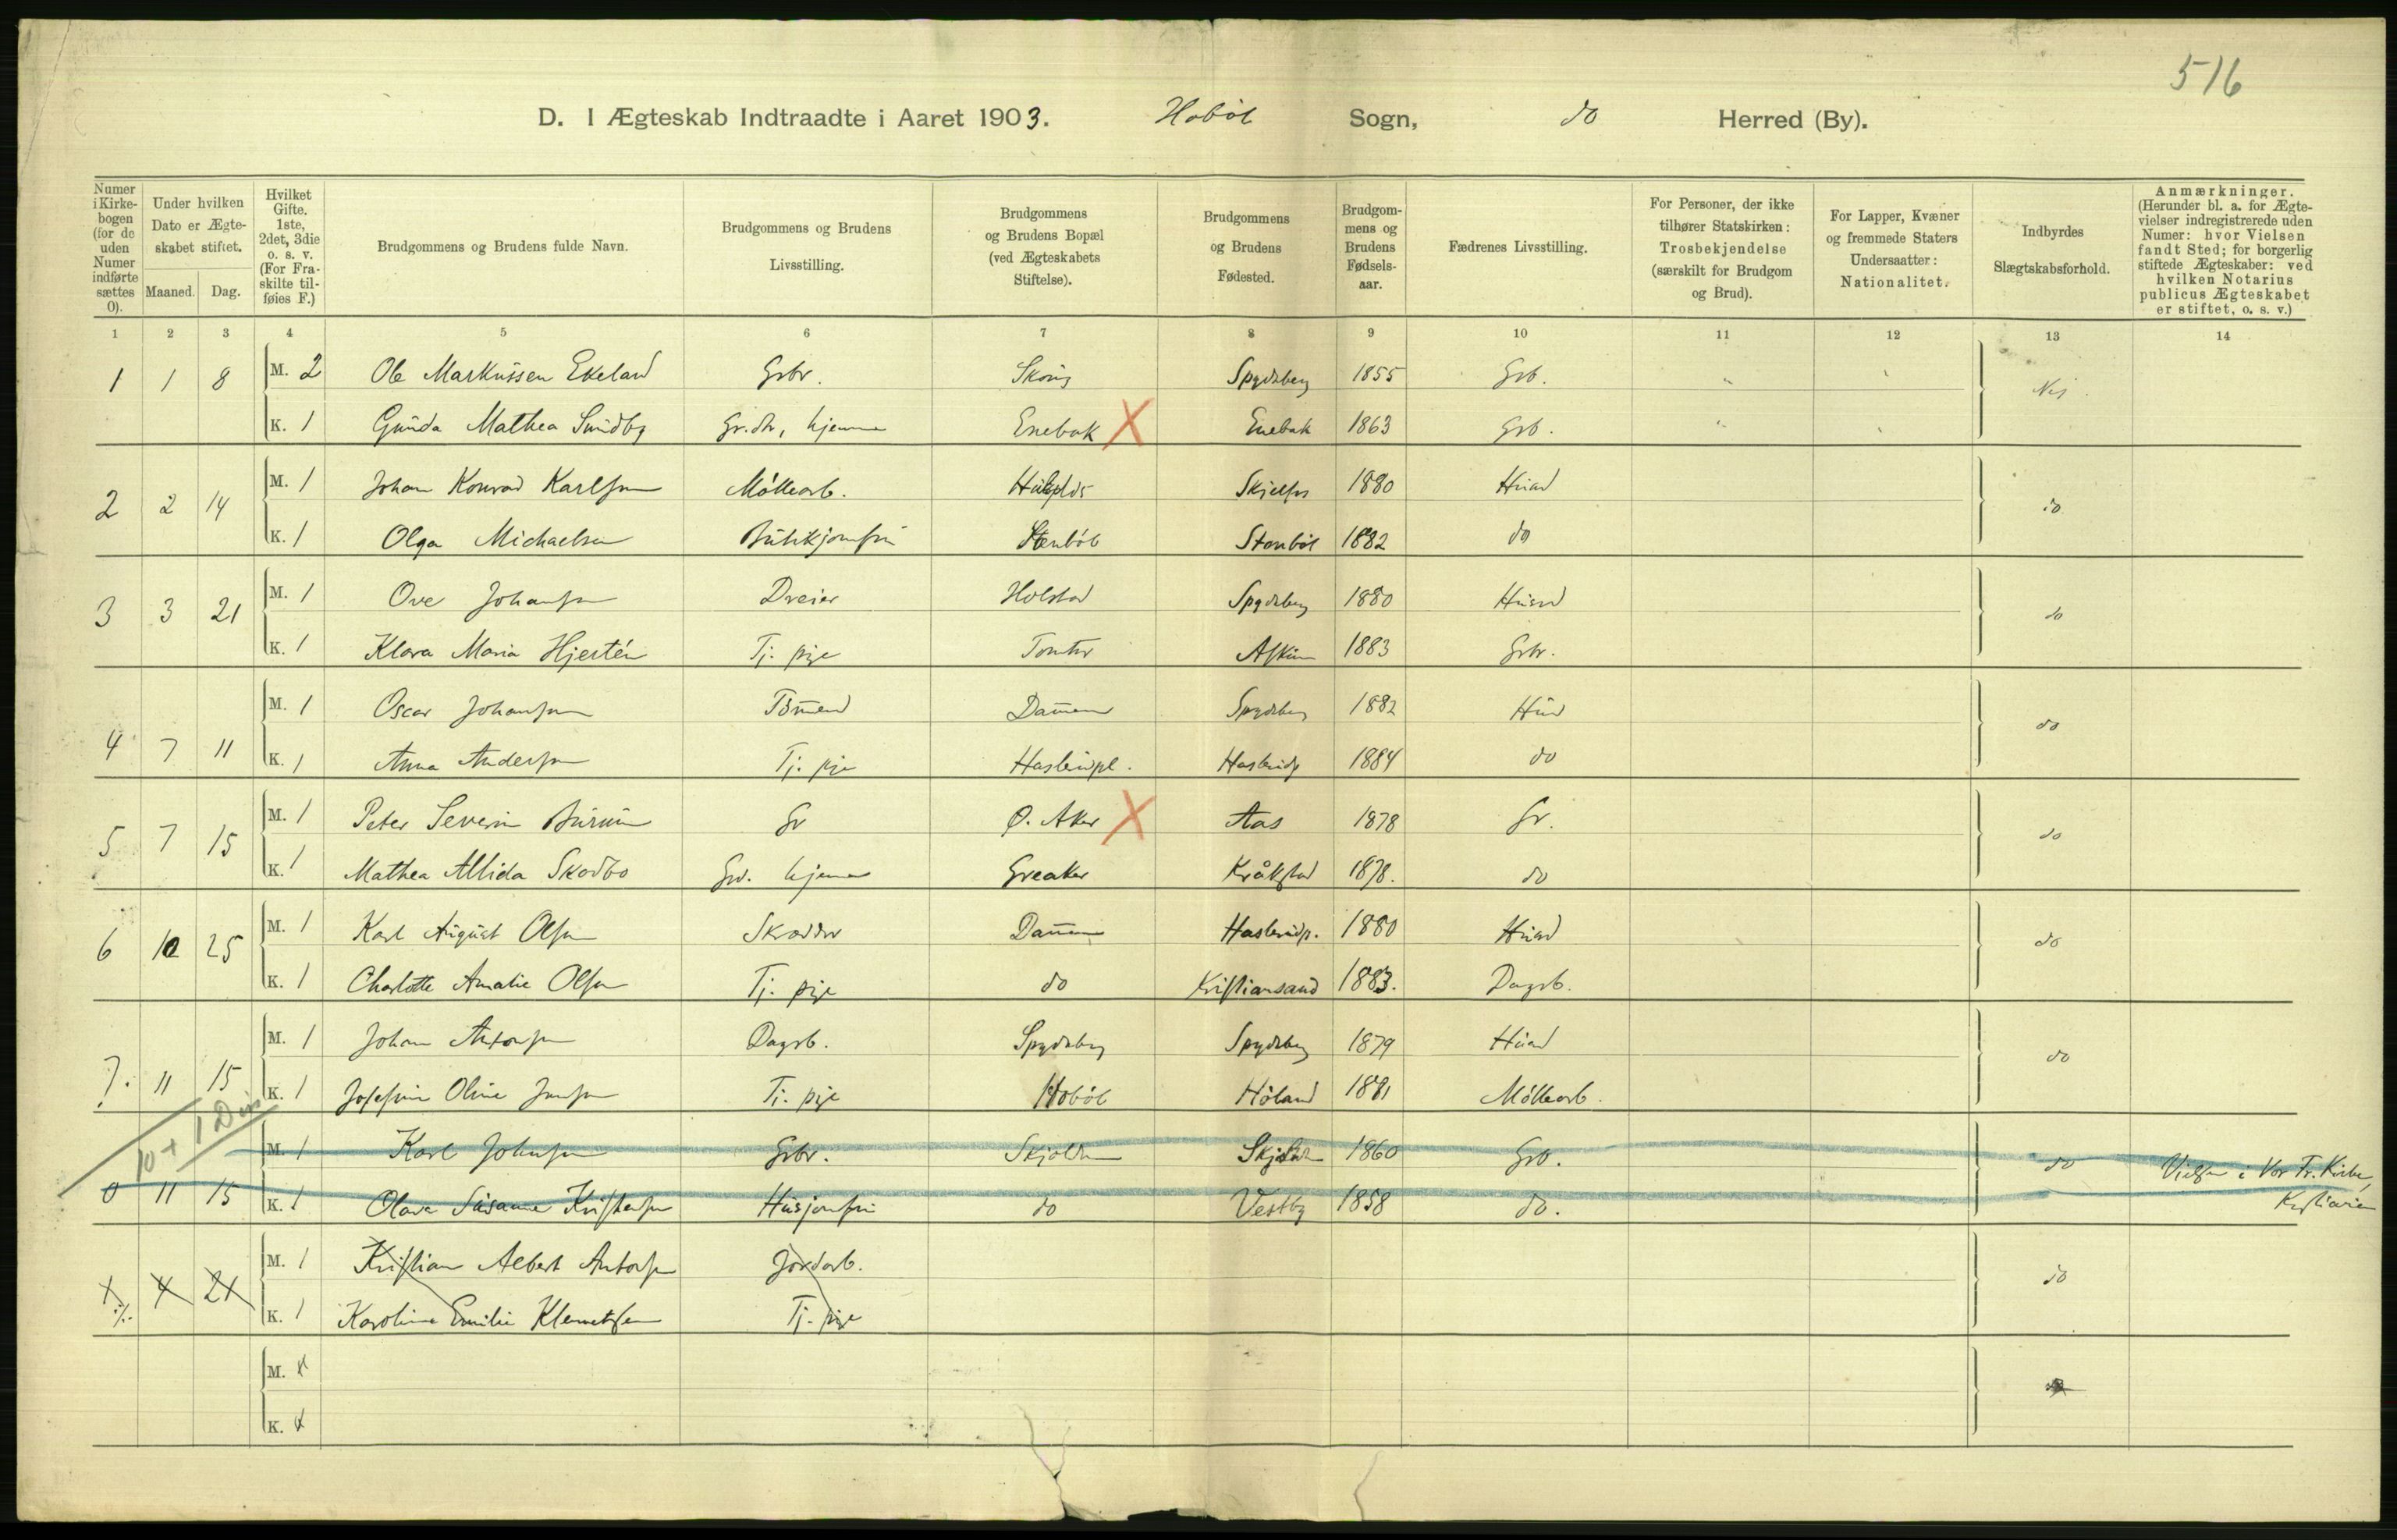 516
D. I Ægteskab Indtraadte i Aaret 1903. Hobøl Sogn, do Herred (By).
Numer i Kirkebogen (for de uden Numer indførte sættes 0).
Under hvilken Dato er Ægteskabet stiftet.
Maaned. Dag.
Hvilket Gifte. 1ste, 2det, 3die o. s. v. (For Fraskilte tilføies F.)
Brudgommens og Brudens fulde Navn.
Brudgommens og Brudens Livsstilling.
Brudgommens og Brudens Bopæl (ved Ægteskabets Stiftelse).
Brudgommens og Brudens Fødested.
Brudgommens og Brudens Fødselsaar.
Fædrenes Livsstilling.
For Personer, der ikke tilhører Statskirken: Trosbekjendelse (særskilt for Brudgom og Brud).
For Lapper, Kvæner og fremmede Staters Undersaatter: Nationalitet.
Indbyrdes Slægtskabsforhold.
Anmærkninger. (Herunder bl. a. for Ægtevielser indregistrerede uden Numer: hvor Vielsen fandt Sted; for borgerlig stiftede Ægteskaber: ved hvilken Notarius publicus Ægteskabet er stiftet, o. s. v.)
1 2 3 4 5 6 7 8 9 10 11 12 13 14
1 1 8 M. 2 Ole Markussen Ekeland Gbr. Skoug Spydeberg 1855 Grb. " " Nei.
K. 1 Gunda Mathea Smidby Gr.dtr, hjemme Enebak X Enebak 1863 Grb. " "
2 2 14 M. 1 Johan Konrad Karlsen Møllearb. Skjelfos 1880 Husd do
K. 1 Olga Michaelsen Butikjomfru Stenbøl Stenbøl 1882 do
3 3 21 M. 1 Ove Johansen Dreier Holstad Spydeberg 1880 Husm do
K. 1 Klara Maria Hjertén Tj. pige Tomter Askim 1883 Gbr.
4 7 11 M. 1 Oscar Johansen Tømmend Dammen Spydeberg 1882 Hus do
K. 1 Anna Andersen Tj. pige Haslerudpl. Haslerudp 1884 do
5 7 15 M. 1 Peter Severin Burum Gr Ø. Aker X Aas 1878 Gr. do
K. 1 Mathea Alida Skodbo Grd. hjemme Greaker Kråkstad 1878. do
6 10 25 M. 1 Karl August Olsen Skrædder Dammen Haslerudp. 1880 Husd do
K. 1 Charlotte Amalie Olsen Tj. pige do Kristiansand 1883. Dagrb.
7. 11 15 M. 1 Johan Antonsen Dagrb. Spydeberg Spydeberg 1879 Husd do
K. 1 Josefine Oline Jensen Tj. pige Hobøl Høland 1881 Møllearb.
10 + 1
M. 1 Karl Johnsen Gbr. Skjolden Skjolden 1860 Grb. do Vielsen i Vor Fr. Kirke,
0 11 15 K. 1 Olava Susanne Kristensen Husjomfru do Vestby 1858 do. Kristiania
4 21 M. 1 Kristian Albert Antonsen Jordarb. do
K. 1 Karoline Emilie Klemetsen Tj. pige
M.
K.